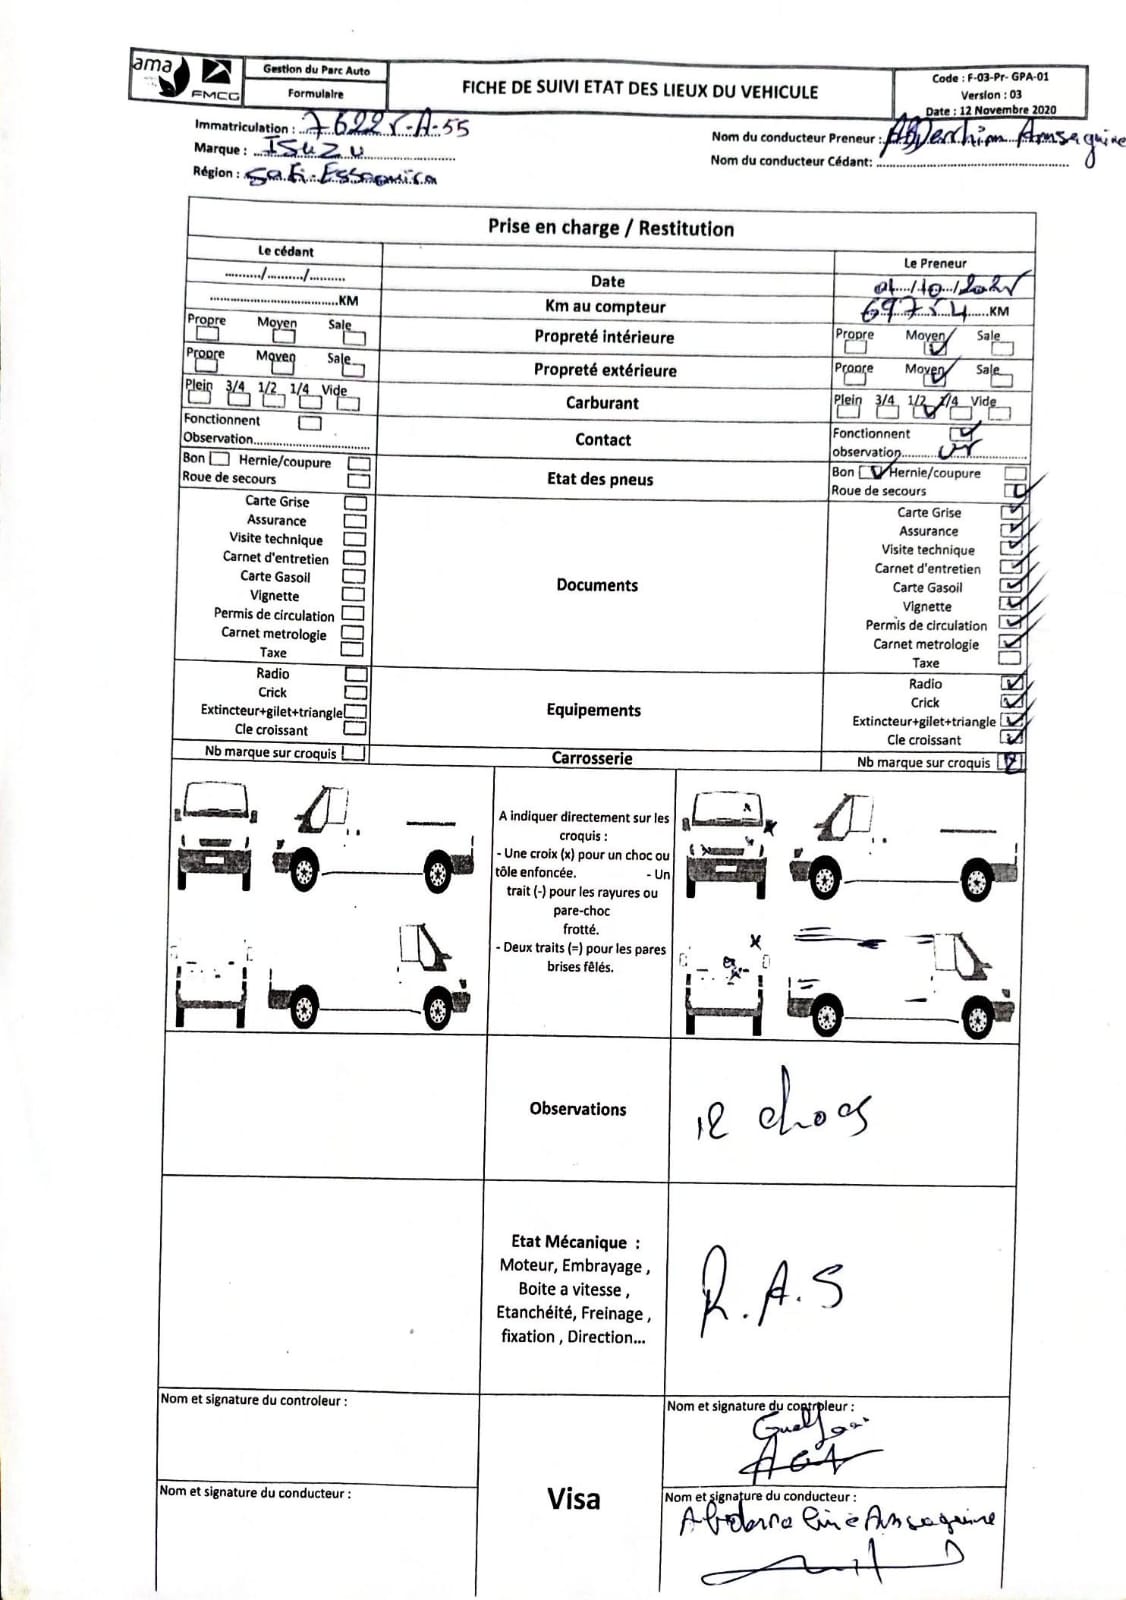 ama
FMCG
Gestion du Parc Auto
Formulaire
FICHE DE SUIVI ETAT DES LIEUX DU VEHICULE
Code : F-03-Pr- GPA-01
Version : 03
Date : 12 Novembre 2020
Immatriculation : 76225-A-55
Marque : ISUZU
Région : Safi-Essaouira
Nom du conducteur Preneur : Abderrhim Amsaguine
Nom du conducteur Cédant:
Prise en charge / Restitution
Le cédant
Le Preneur
........../........../.......... Date 01/10/
KM Km au compteur 69754 KM
Propre Moyen Sale Propreté intérieure Propre Moyen Sale
Propre Moyen Sale Propreté extérieure Propre Moyen Sale
Plein 3/4 1/2 1/4 Vide Carburant Plein 3/4 1/2 1/4 Vide
Fonctionnent Contact Fonctionnent
Observation observation
Bon Hernie/coupure Etat des pneus Bon Hernie/coupure
Roue de secours Roue de secours
Carte Grise Carte Grise
Assurance Assurance
Visite technique Visite technique
Carnet d'entretien Carnet d'entretien
Carte Gasoil Documents Carte Gasoil
Vignette Vignette
Permis de circulation Permis de circulation
Carnet metrologie Carnet metrologie
Taxe Taxe
Radio Radio
Crick Crick
Extincteur+gilet+triangle Equipements Extincteur+gilet+triangle
Cle croissant Cle croissant
Nb marque sur croquis Carrosserie Nb marque sur croquis
A indiquer directement sur les
croquis :
- Une croix (x) pour un choc ou
tôle enfoncée. - Un
trait (-) pour les rayures ou
pare-choc
frotté.
- Deux traits (=) pour les pares
brises fêlés.
Observations 12 chocs
Etat Mécanique :
Moteur, Embrayage ,
Boite a vitesse ,
Etanchéité, Freinage ,
fixation , Direction...
R.A.S
Nom et signature du controleur :
Nom et signature du controleur :
Nom et signature du conducteur :
Visa
Nom et signature du conducteur :
Amsaguine